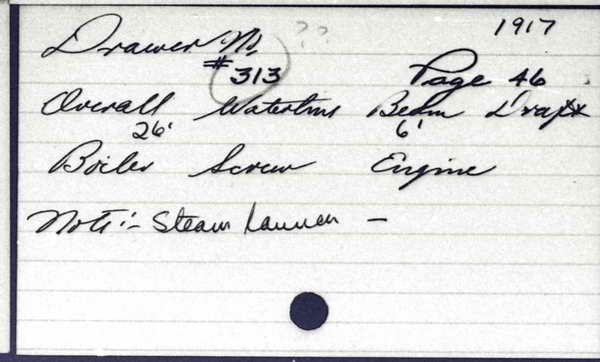 1917
Drawer No ??
#313 Page 46
Overall Waterline Beam Draft
26' 6'
Boiler Screw Engine
Note:- Steam Launch -